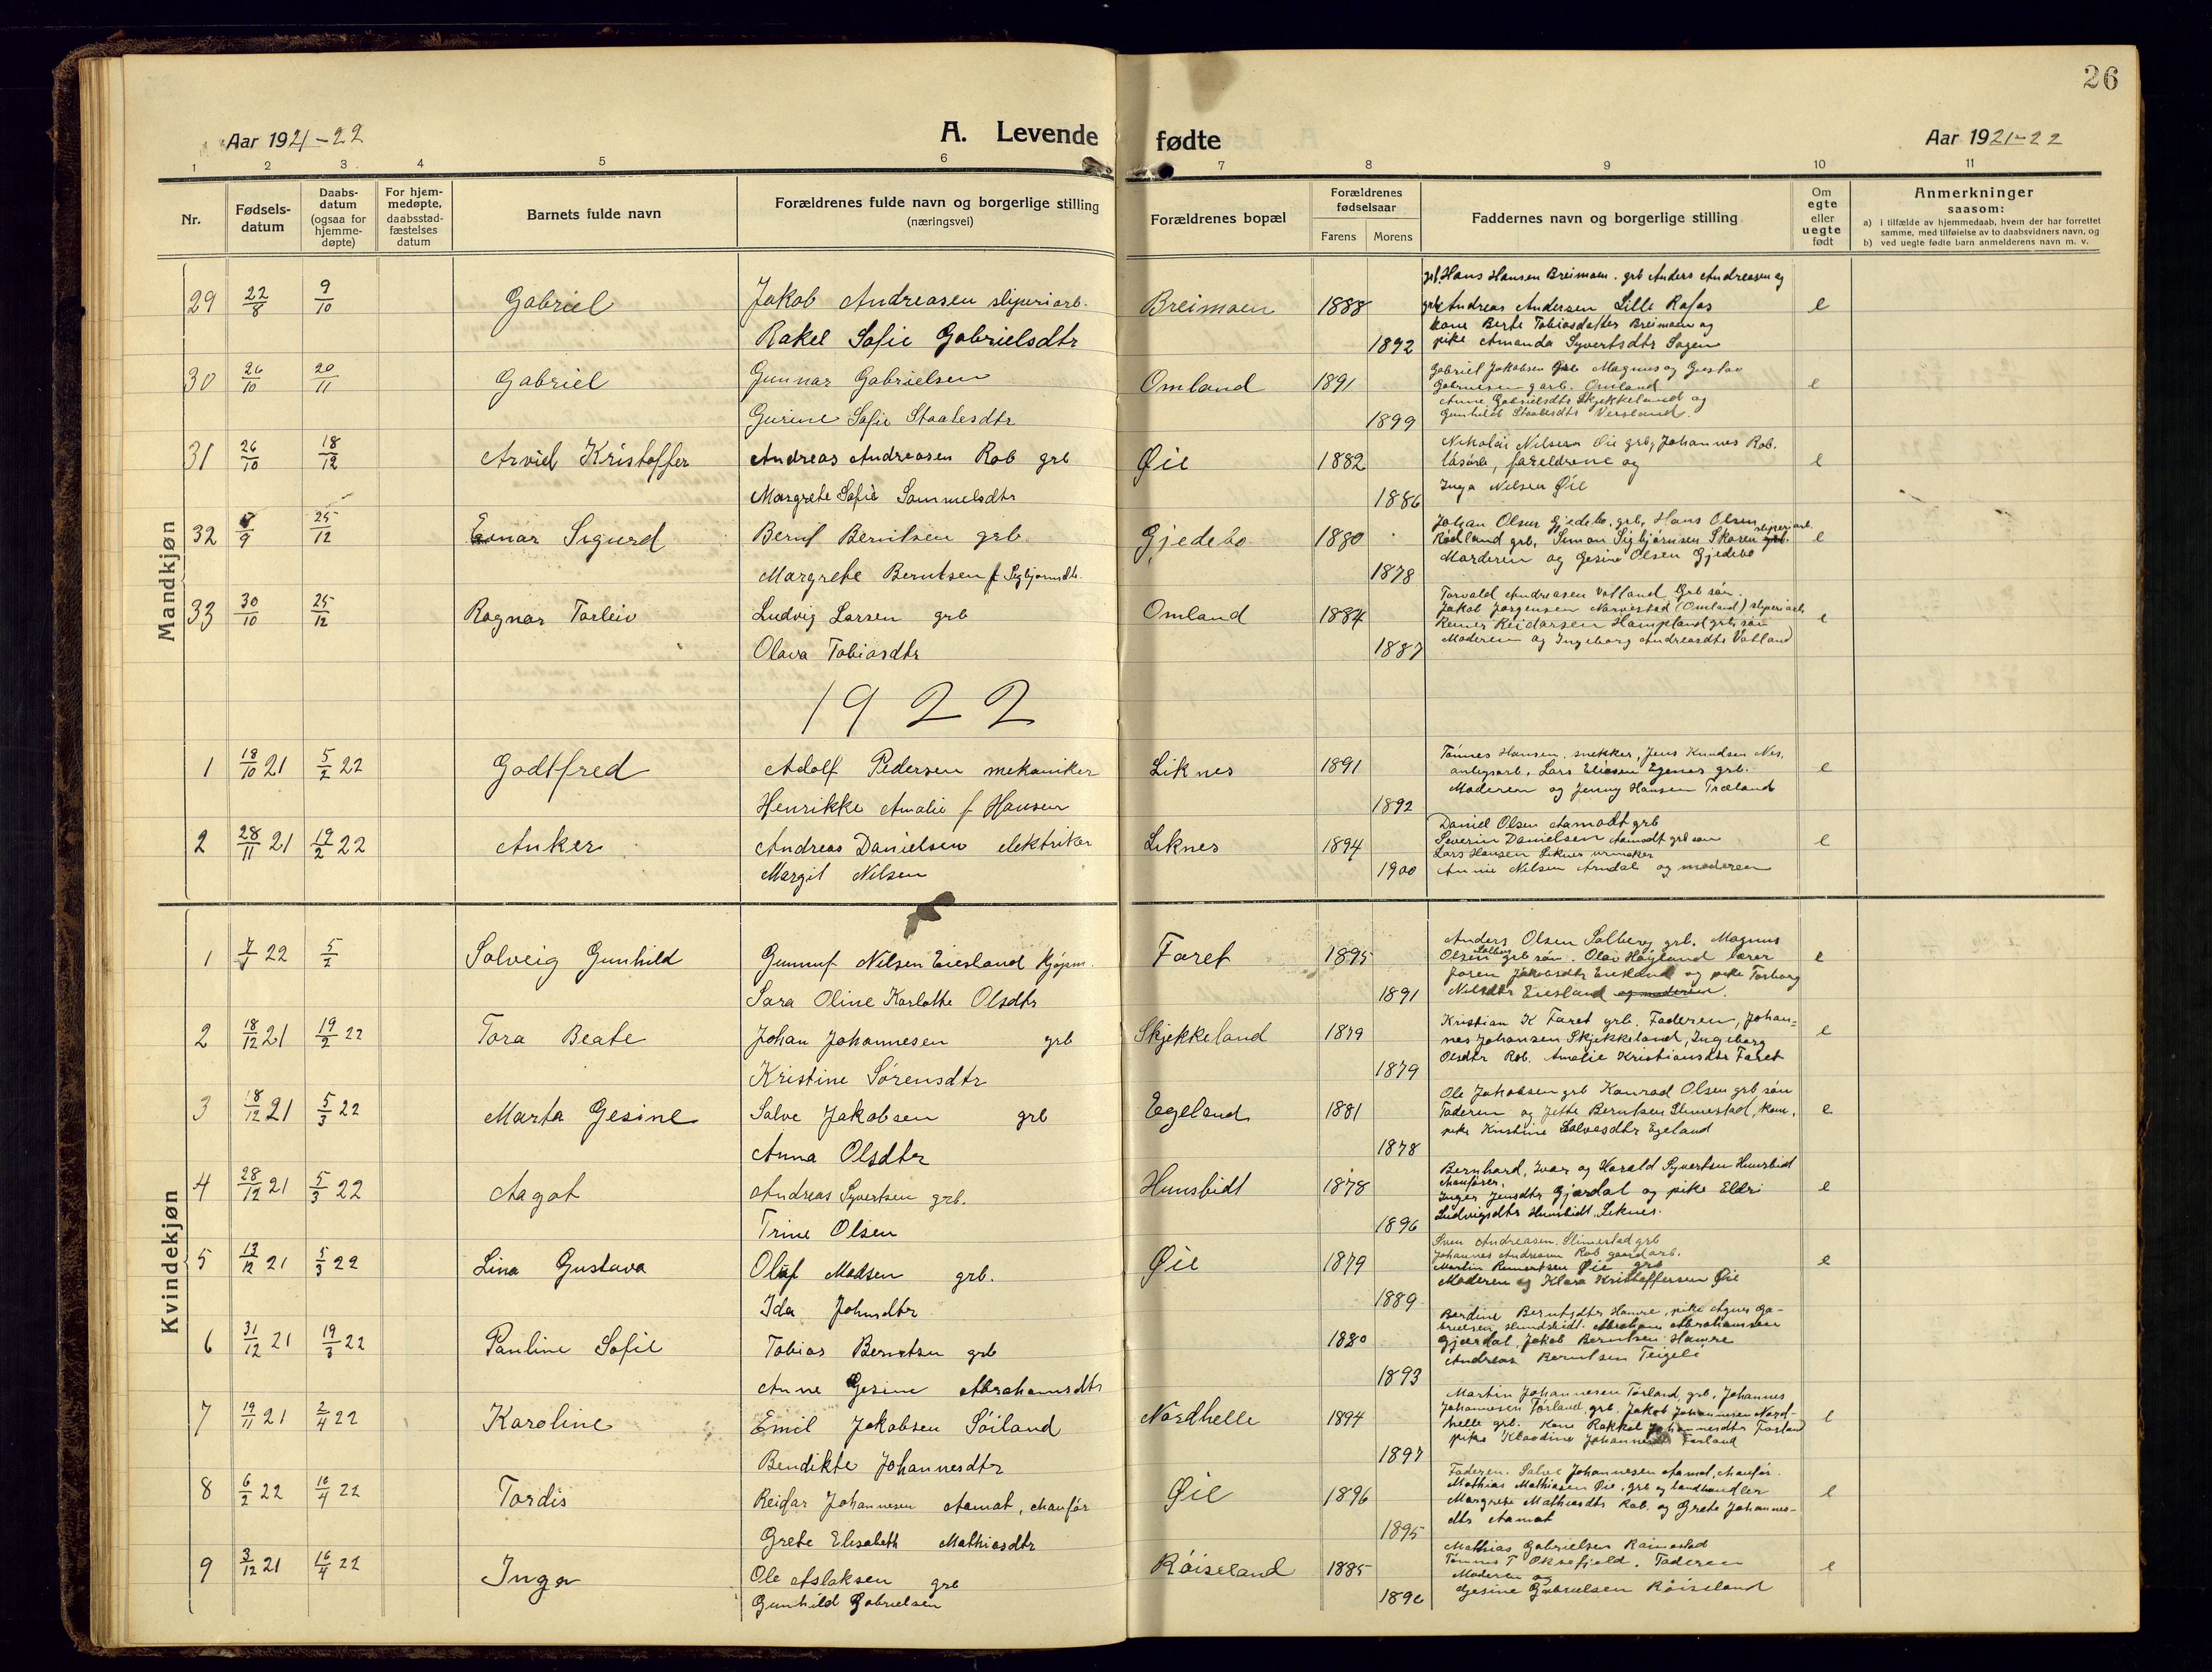 26
Aar 1921-22
A. Levende fødte
Aar 1921-22
1 2 3 4 5 6 7 8 9 10 11
Nr.
Fødsels-
datum
Daabs-
datum
(ogsaa for
hjemme-
døpte)
For hjem-
medøpte,
daabsstad-
fæstelses
datum
Barnets fulde navn
Forældrenes fulde navn og borgerlige stilling
(næringsvei)
Forældrenes bopæl
Forældrenes
fødselsaar
Farens Morens
Faddernes navn og borgerlige stilling
Om
egte
eller
uegte
født
Anmerkninger
saasom:
a) i tilfælde av hjemmedaab, hvem der har forrettet
samme, med tilføielse av to daabsvidners navn, og
b) ved uegte fødte barn anmelderens navn m. v.
Mandkjøn
29 22/8 9/10 Gabriel Jakob Andreasen sliperiarb. Breimoen 1888 e
Rakel Sofie Gabrielsdtr 1892
grb. Hans Hansen Breimoen. grb Anders Andreasen og
grb Andreas Andersen Lille Rafos
kone Berte Tobiasdatter Breimoen og
pike Amanda Syvertsdtr Sagen
30 26/10 20/11 Gabriel Gunnar Gabrielsen Omland 1891 e
Gurine Sofie Staalesdtr 1899
Gabriel Jakobsen Grb Magnus og Gustav
Gabrielsen garb. Omland
Anne Gabrielsdtr Skjekkeland og
Gunhild Staalesdtr Versland.
31 26/10 18/12 Arvid Kristoffer Andreas Andreasen Rob grb Øie 1882 e
Margrete Sofie Sammelsdtr 1886
Nikolai Nilsen Øie grb, Johannes Rob.
løsarb, foreldrene og
Inga Nilsen Øie
32 5/9 25/12 Einar Sigurd Bernt Berntsen grb. Gjedebo 1880 e
Margrete Berntsen f Sigbjørnsdtr. 1878
Johan Olsen Gjedebo, grb, Hans Olsen
Rødland grb, Simon Sigbjørnsen Skoren sliperiarb.
Moderen og Gesine Olsen Gjedebo
33 30/10 25/12 Ragnar Torleiv Ludvig Larsen grb Omland 1884 e
Olava Tobiasdtr 1887
Torvald Andreasen Vatland, Grb søn.
Jakob Jørgensen Narvestad (Omland) sliperiarb
Reiner Reidarsen Hampland grb. søn
Moderen og Ingeborg Andreasdtr Vatland
1922
1 18/10 21 5/2 22 Godtfred Adolf Pedersen mekaniker Liknes 1891 e
Henrikke Amalie f Hansen 1892
Tønnes Hansen, snekker, Jens Knudsen Nes,
anlegsarb. Lars Eliasen Egenes grb.
Moderen og Jenny Hansen Træland
2 28/11 21 19/2 22 Anker Andreas Danielsen elektriker Liknes 1894 e
Margit Nilsen 1900
Daniel Olsen Aamodt grb
Severin Danielsen Aamodt grb søn
Lars Hansen Liknes urmaker
Annie Nilsen Arndal og moderen
Kvindekjøn
1 7/1 22 5/2 Solveig Gunhild Gunnuf Nilsen Eiesland kjøpm. Faret 1895 e
Sara Oline Karlotte Olsdtr 1891
Anders Olsen Solberg grb. Magnus
Olsen Solberg grb søn. Olav Høyland lærer
Joren Jakobsdtr Eiesland og pike Torborg
Nilsdtr Eiesland og moderen.
2 18/12 21 19/2 22 Tora Beate Johan Johannesen grb Skjekkeland 1879 e
Kristine Sørensdtr 1879
Kristian K Faret grb. Faderen, Johan=
nes Johansen Skjekkeland, Ingeborg
Olsdtr Rob. Amalie Kristiansdtr Faret
3 18/12 21 5/3 22 Marta Gesine Salve Jakobsen grb Egeland 1881 e
Anna Olsdtr 1878
Ole Jakobsen grb Konrad Olsen grb søn
Faderen og Jette Berntsen Slimestad, kone,
pike Kristine Salvesdtr Egeland
4 28/12 21 5/3 22 Aagot Andreas Syvertsen grb. Hunsbidt 1878 e
Trine Olsen 1896
Bernhard, Ivar og Harald Syvertsen Hunsbidt
chauförer,
Inger Jensdtr Gjærdal og pike Eldri
Ludvigsdtr Hunsbidt Liknes.
5 13/12 21 5/3 22 Lina Gustava Oluf Madsen grb. Øie 1879 e
Ida Johnsdtr 1889
Sven Andreasen Slimestad grb
Johannes Andreasen Rob gaardarb.
Martin Reinertsen Øie grb
Moderen og Klara Kristoffersen Øie
6 31/12 21 19/3 22 Pauline Sofie Tobias Berntsen grb 1880
Anne Gesine Abrahamsdtr 1893
Berdine Berntsdtr Hamre, pike Agnes Ga-
brielsen Hundsbidt. Abraham Abrahamsen
Gjærdal, Jakob Berntsen Hamre
Andreas Berntsen Teigeli
7 19/11 21 2/4 22 Karoline Emil Jakobsen Söiland Nordhelle 1894 e
Bendikte Johannesdtr 1897
Martin Johannesen Førland grb, Johannes
Johannesen Førland grb. Jakob Johannesen Nord-
helle grb. Kone Rakkel Johannesdtr Førland
pike Klaudine Johannesdtr Førland
8 6/2 22 16/4 22 Tordis Reidar Johannesen Aamot, chauför Øie 1896 e
Grete Elisabeth Mathiasdtr 1895
Faderen. Salve Johannesen Aamot, chauför.
Mathias Mathiasen Øie, grb og landhandler
Margrete Mathiasdtr Rob. og Grete Johannes-
dtr Aamot
9 3/12 21 16/4 22 Inga Ole Aslaksen grb Röiseland 1885 e
Gunhild Gabrielsen
Mathias Gabrielsen
Tønnes T Oksefjeld. Faderen
Moderen og
Gesine Gabrielsen Röiseland